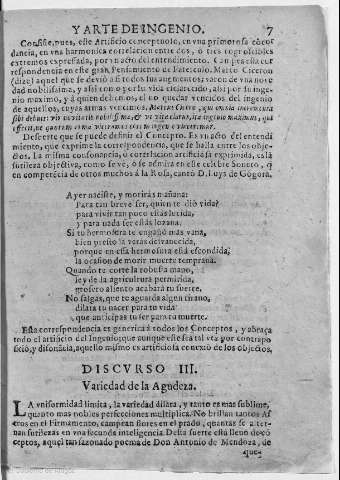 Y ARTE DE INGENIO. 7
Consiste, pues, este Artificio conceptuoso, en vna primorosa cōcor
dancia, en vna harmonica correlacion entre dos, ò tres cognoscibles
extremos expressada, por vn acto del entendimiento.
respondencia en este gran Pensamiento de Paterculo. Marco Ciceron
(dize) aquel que se deviò a si todos sus augmentos: varon de vna no
dad nobilissima, y assi como por su vida esclarecido, assi por su inge
nio maximo, y à quien debemos, el no quedar vencidos del ingenio
de aquellos, cuyas armas vencimos.
De suerte que se puede definir el Concepto. Es vn acto del entendi
miento, que exprime la correspondencia, que se halla entre los obje-
ctos. La misma consonancia, o correlacion artificiosa exprimida, es la
sutileza objectiva, como se vè, ò se admira en este celebre Soneto, q̄
en competencia de otros muchos à la Rosa, cantò D. Luys de Gōgora.
Ayer naciste, y moriràs mañana:
Para tan breve ser, quien te diò vida?
para vivir tan poco estàs lucida,
y para nada ser estàs lozana.
Si tu hermosura te engañò mas vana,
bien presto la veràs desvanecida,
porque en essa hermosura està escondida,
la ocasion de morir muerte temprana.
Quando te corte la robusta mano,
ley de la agricultura permitida,
grossero aliento acabarà tu suerte.
No salgas, que te aguarda algun tirano,
dilata tu nacer para tu vida
que anticipas tu ser para tu muerte.
Esta correspondencia es generica à todos los Conceptos, y abraça
todo el artificio del Ingenio; que aunque este sea tal vez por contrapo
siciō, y disonācia, aquello mismo es artificiosa conexiō de los objectos.
DISCVRSO III.
Variedad de la Agudeza.
LA vniformidad limita, la variedad dilata, y tanto es mas sublime,
quanto mas nobles perfecciones multiplica. No brillan tantos As
tros en el Firmamento, campean flores en el prado, quantas se alter-
nan sutilezas en vna fecunda inteligencia. Desta suerte està lleno de cō
ceptos, aquel tan sazonado poema de Don Antonio de Mendoza, de
aquey